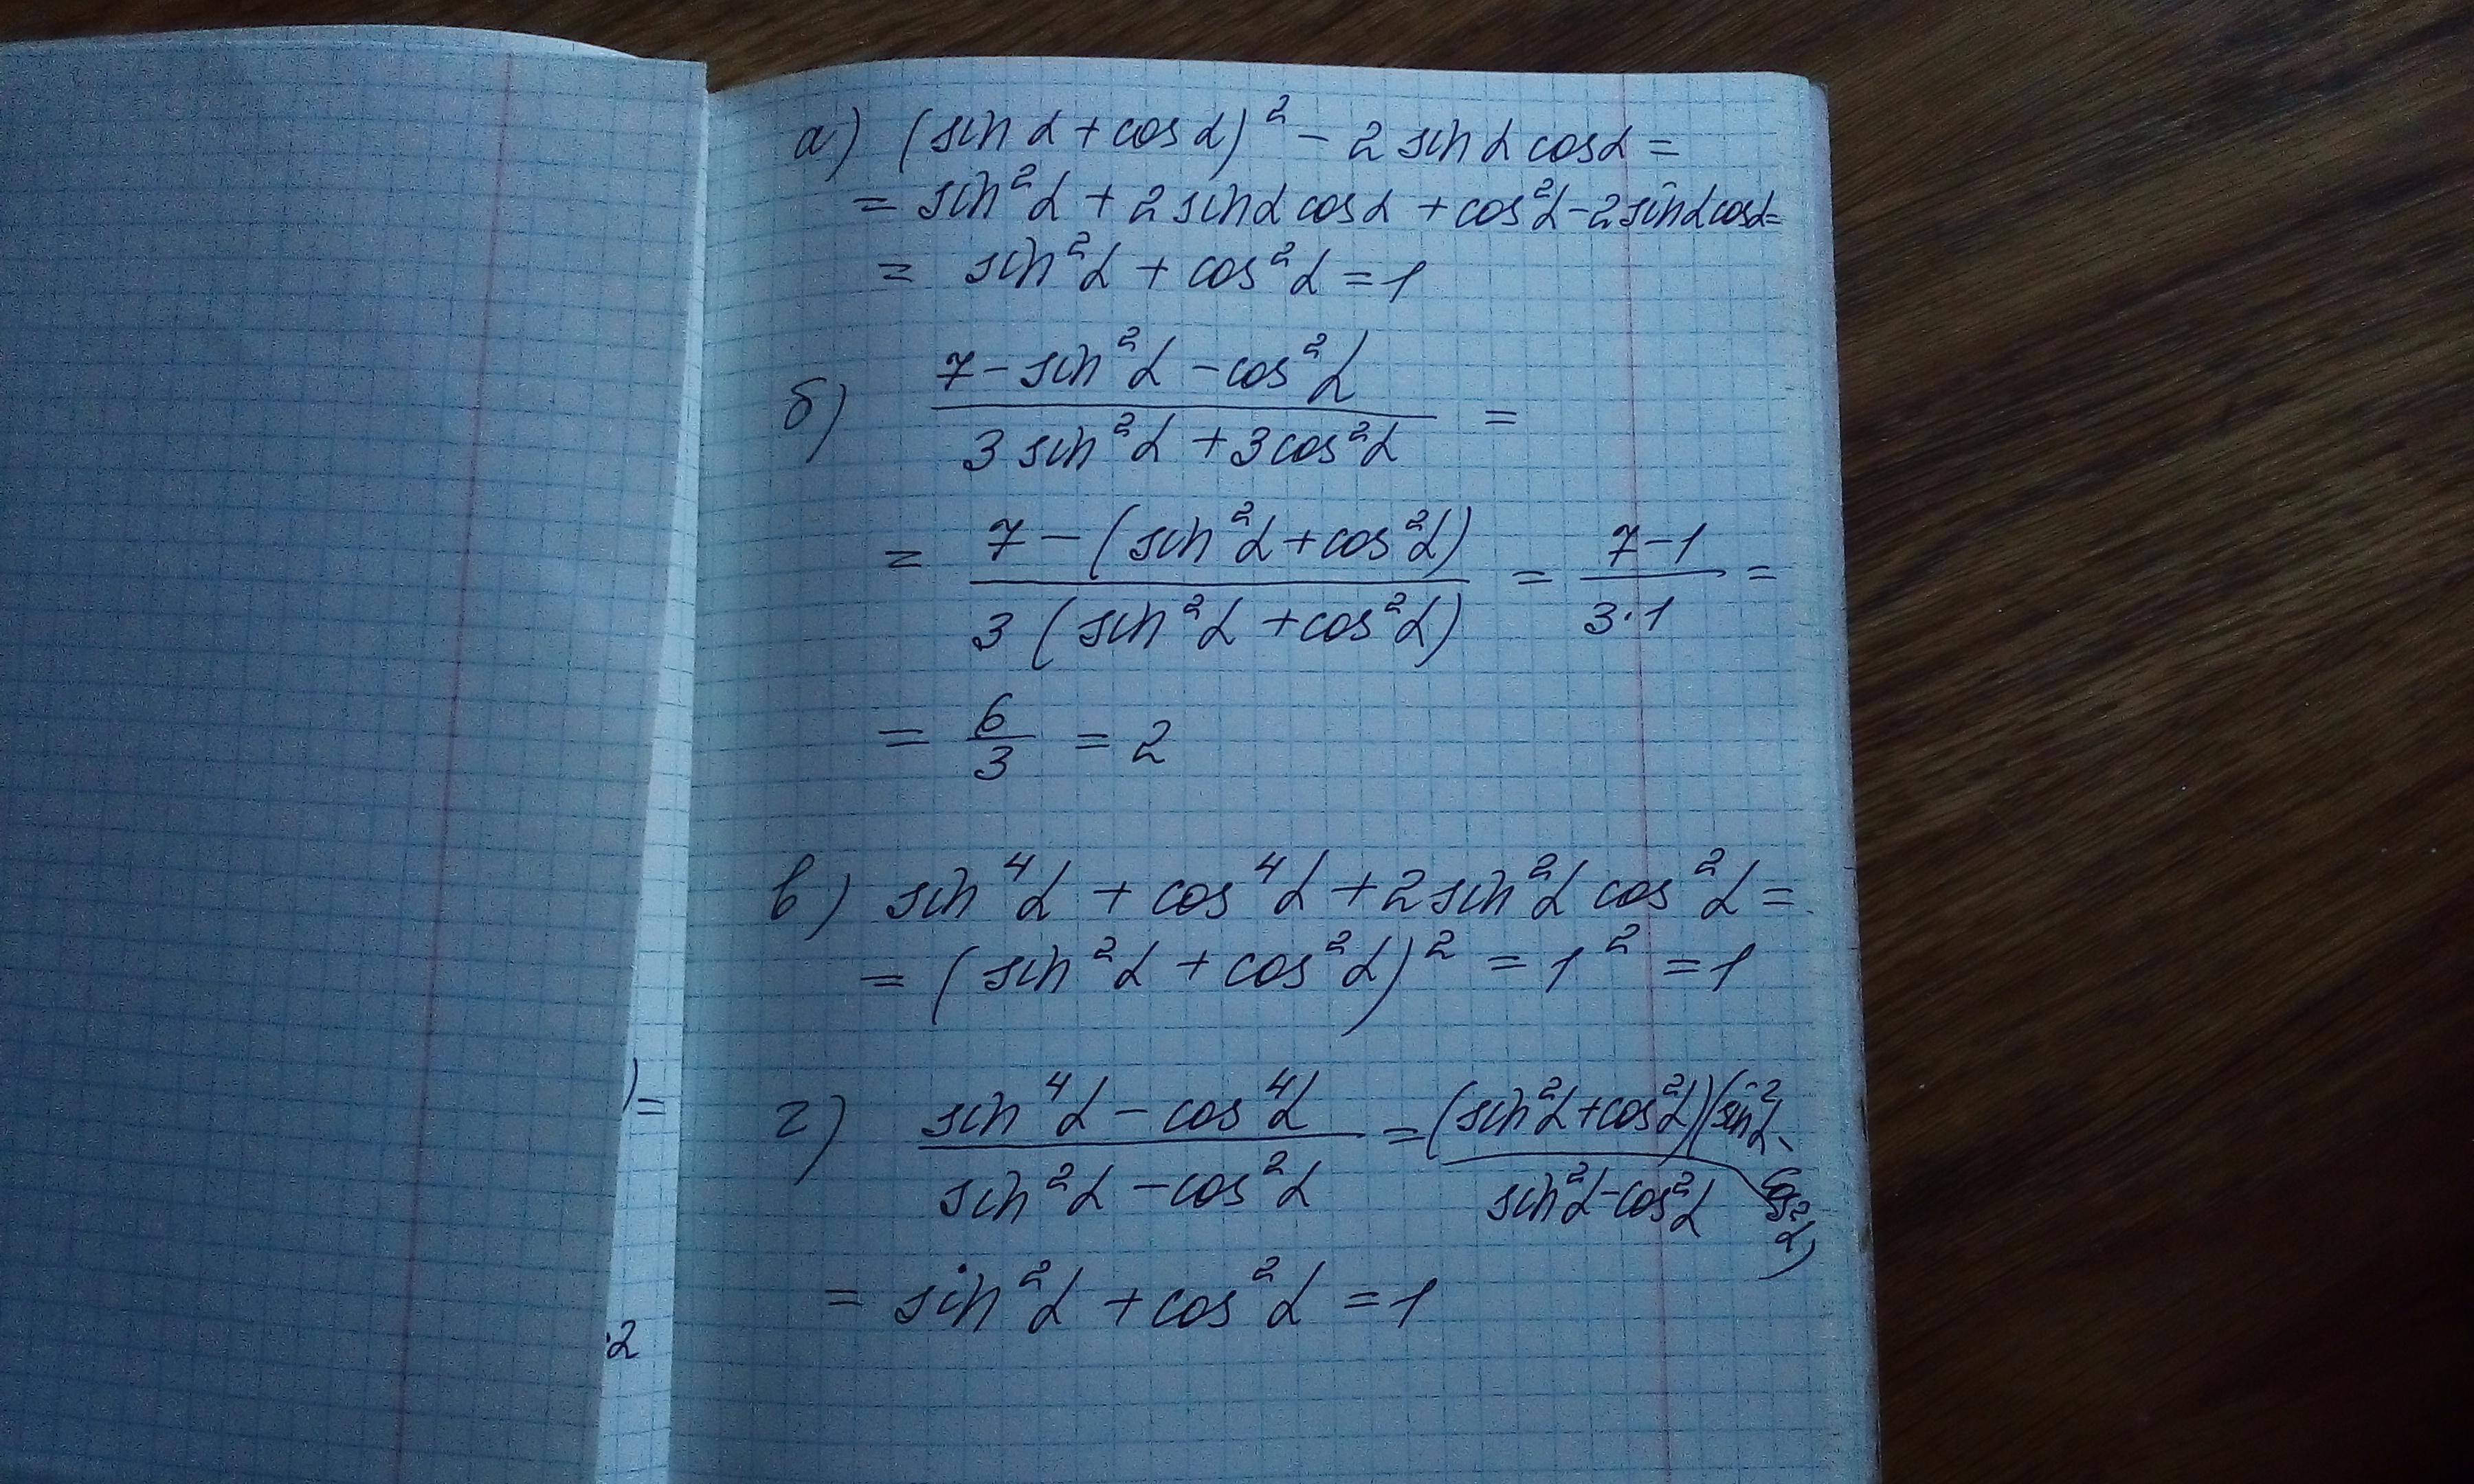 а) (sin α + cos α)² - 2 sin α cos α =
= sin²α + 2 sin α cos α + cos²α - 2 sin α cos α =
= sin²α + cos²α = 1
б) (7 - sin²α - cos²α) / (3 sin²α + 3 cos²α) =
= (7 - (sin²α + cos²α)) / (3 (sin²α + cos²α)) = (7 - 1) / (3 · 1) =
= 6/3 = 2
в) sin⁴α + cos⁴α + 2 sin²α cos²α =
= (sin²α + cos²α)² = 1² = 1
г) (sin⁴α - cos⁴α) / (sin²α - cos²α) = (sin²α + cos²α)(sin²α - cos²α) / (sin²α - cos²α)
= sin²α + cos²α = 1
) =
·2